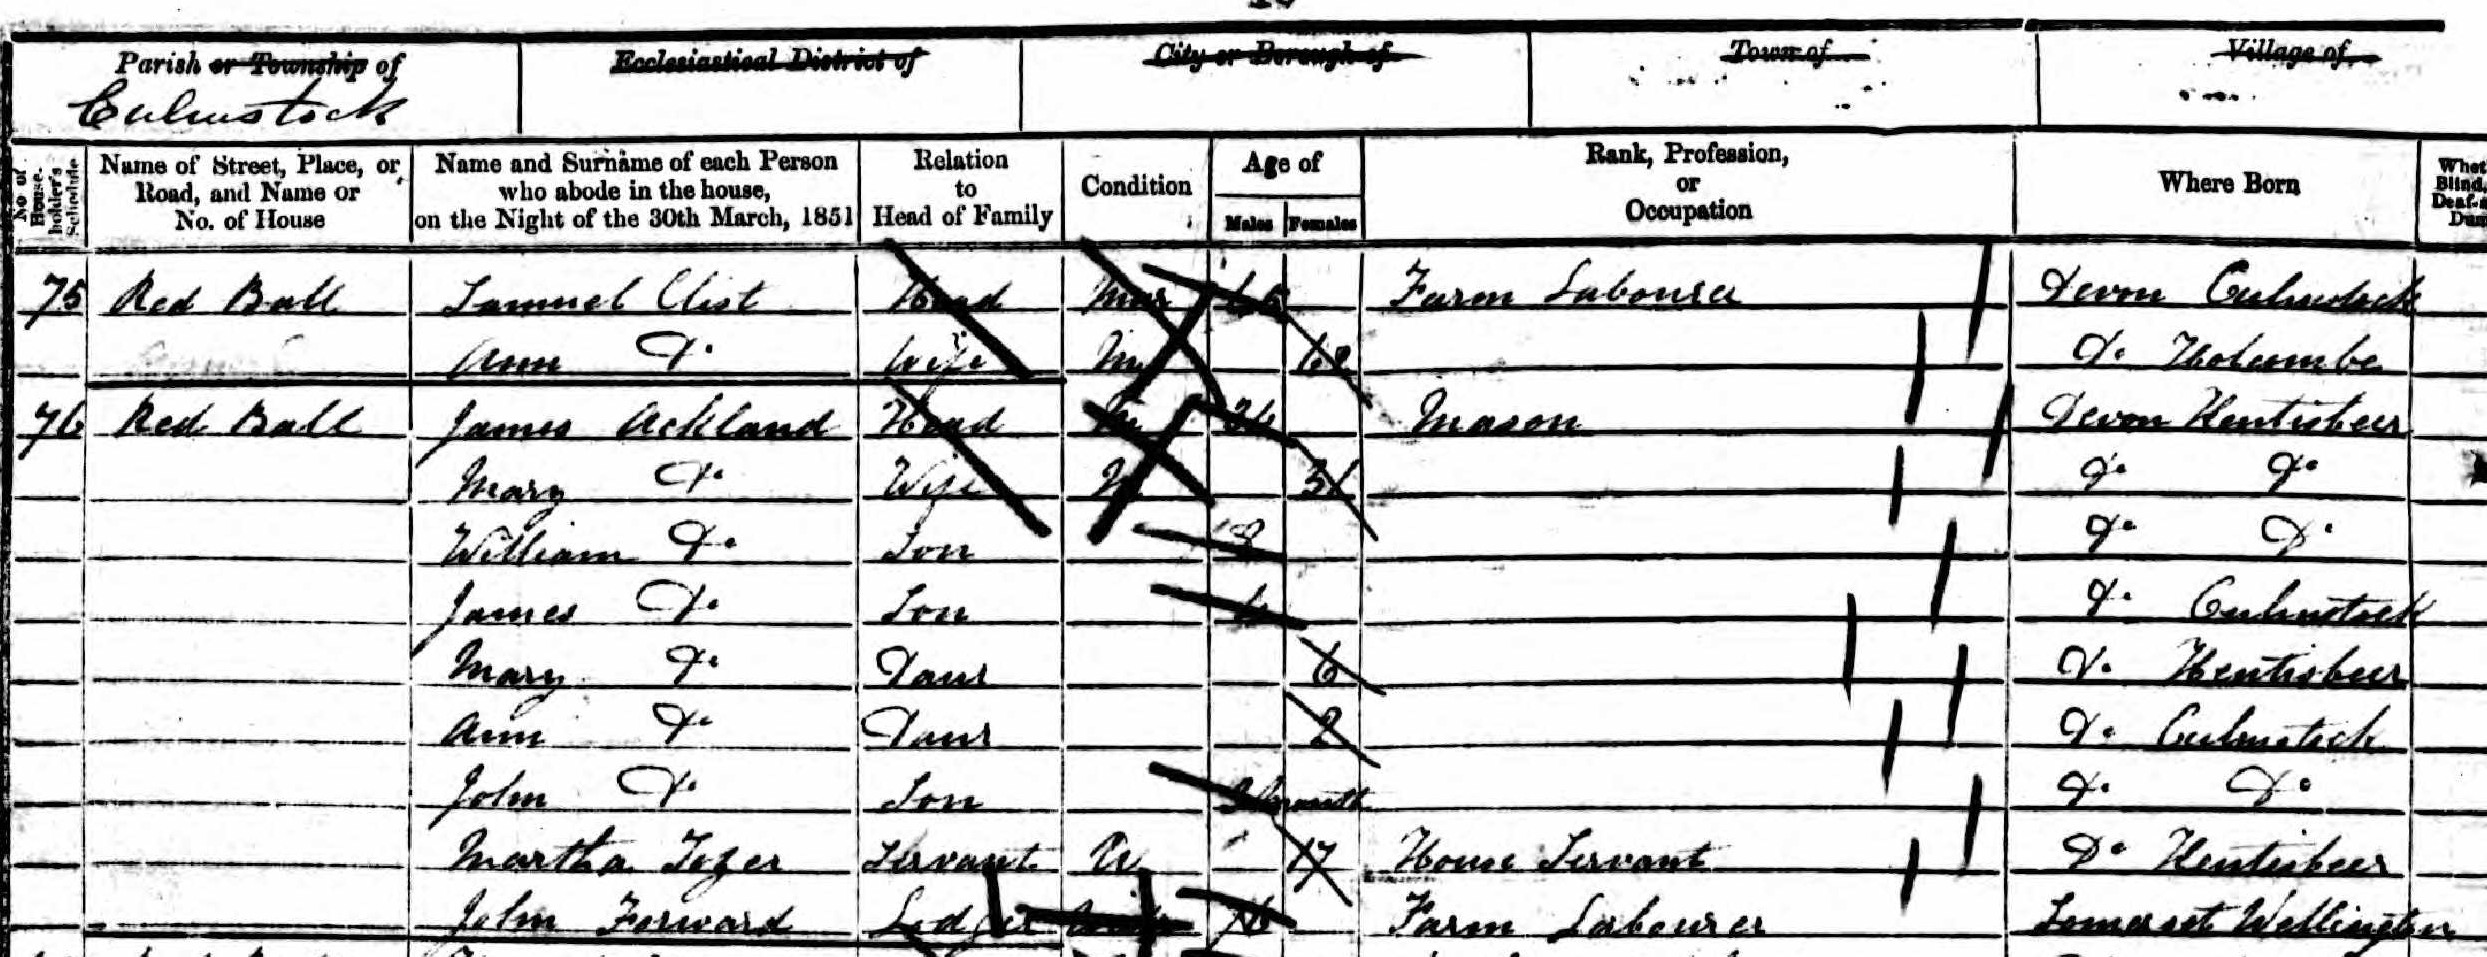 Parish or Township of
Culmstock
Ecclesiastical District of
City or Borough of
Town of
Village of
No of House-holder's Schedule
Name of Street, Place, or Road, and Name or No. of House
Name and Surname of each Person who abode in the house, on the Night of the 30th March, 1851
Relation to Head of Family
Condition
Age of
Males
Females
Rank, Profession, or Occupation
Where Born
75 Red Ball Samuel Clist Head Mar Farm Labourer Devon Culmstock
Ann Do Wife M 62 Do Holcombe
76 Red Ball James Ackland Head M Mason Devon Kentisbeer
Mary Do Wife M Do Do
William Do Son 8 Do Do
James Do Son Do Culmstock
Mary Do Daur 6 Do Kentisbeer
Ann Do Daur 2 Do Culmstock
John Do Son Do Do
Martha Tozer Servant U 17 House Servant Do Kentisbeer
John Forward Lodger Farm Labourer Somerset Wellington